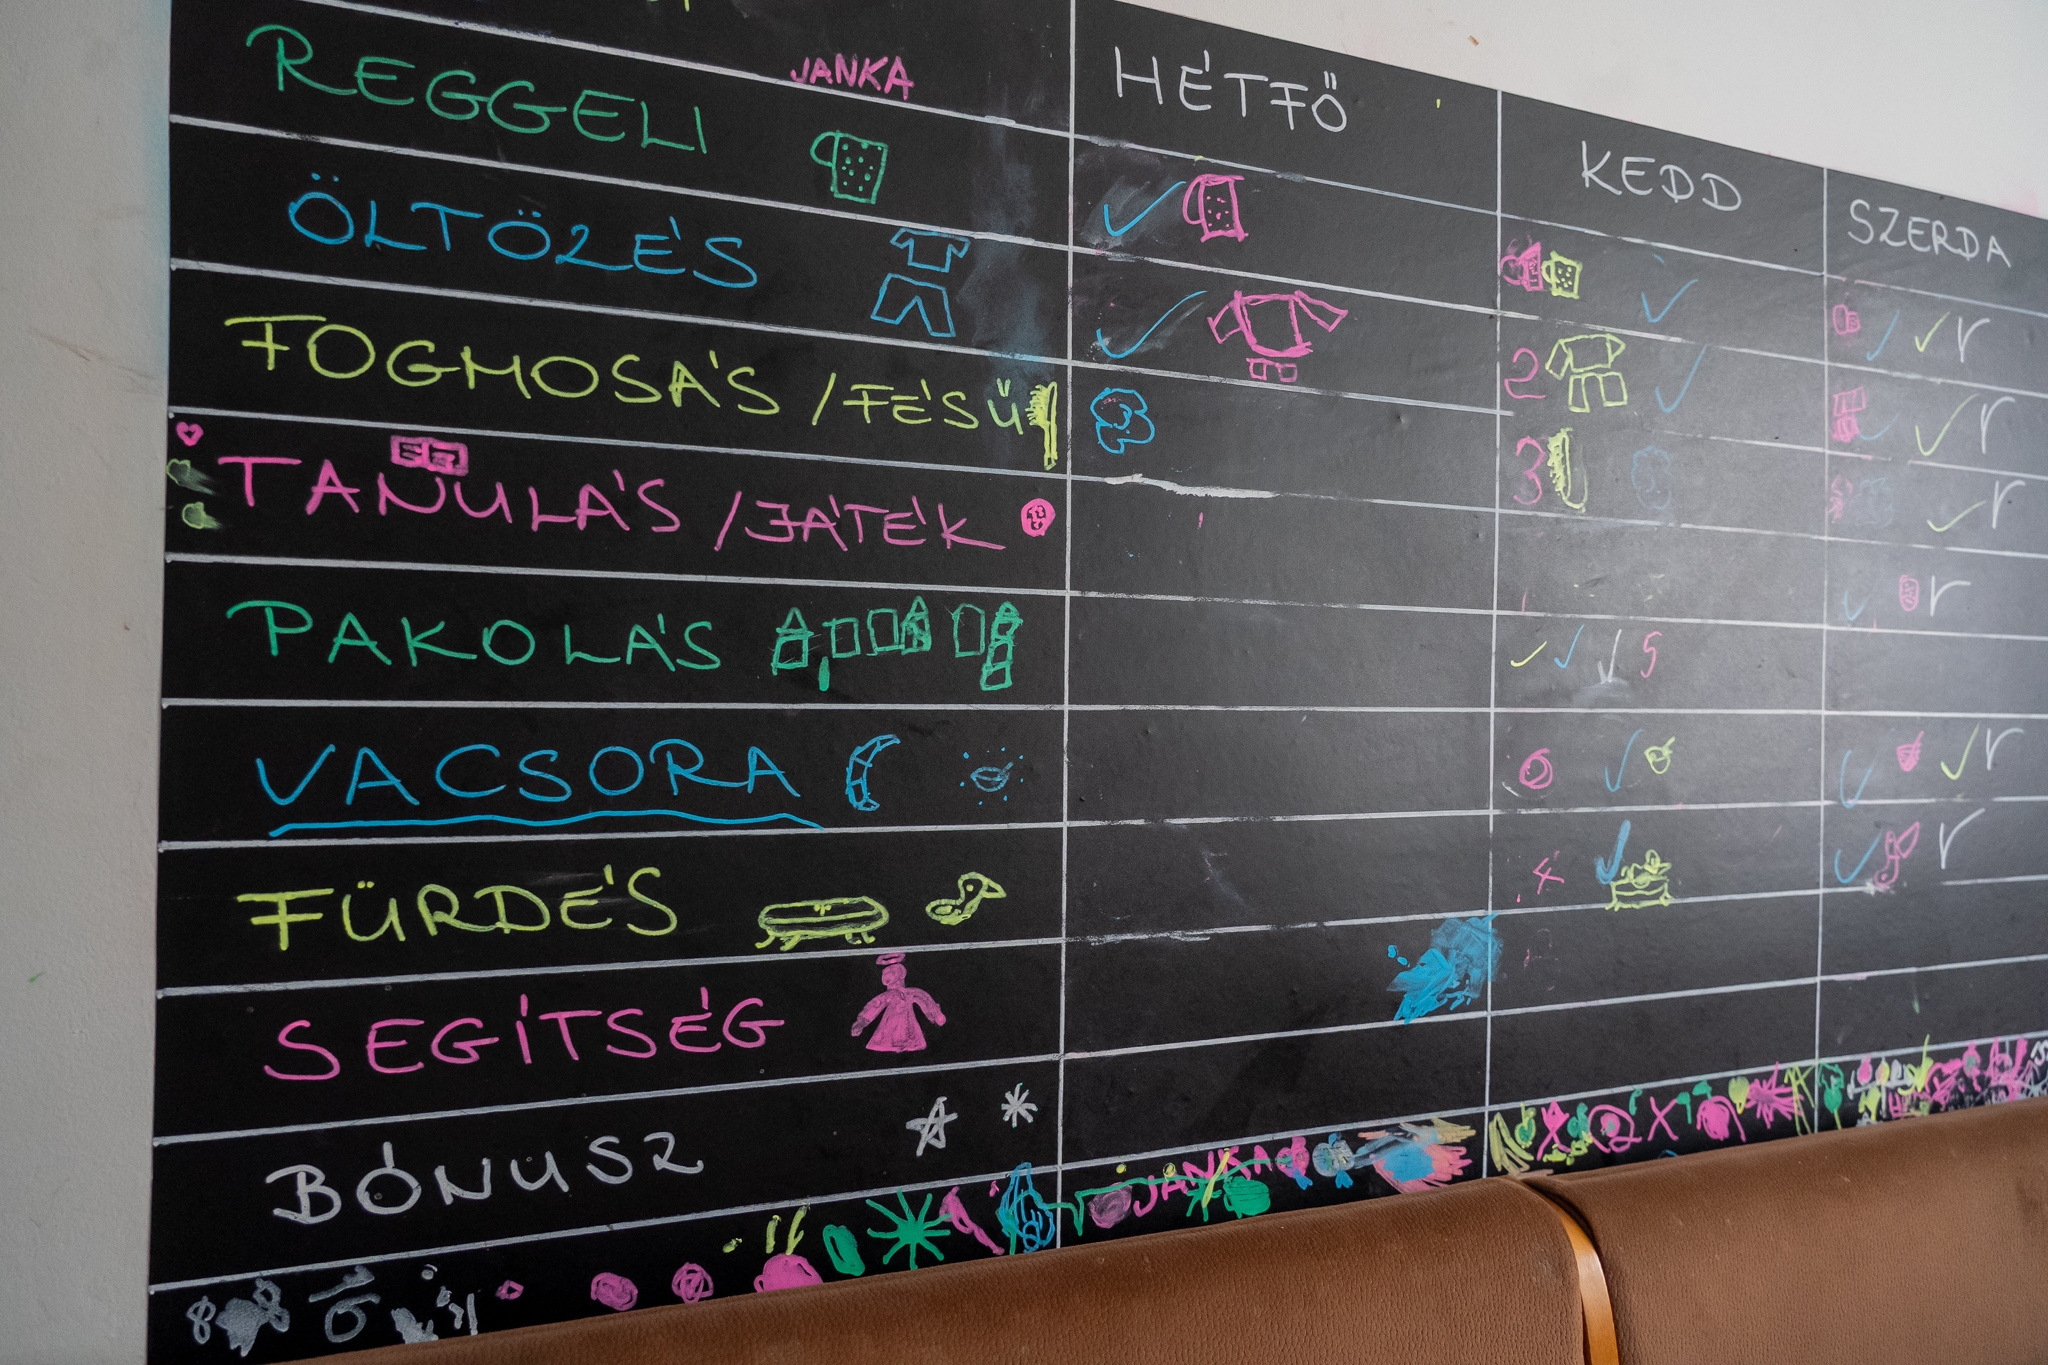 JANKA
HÉTFŐ
KEDD
SZERDA
REGGELI
ÖLTÖZÉS
2
FOGMOSÁS / FÉSŰ
3
TANULÁS / JÁTÉK
PAKOLÁS
5
VACSORA
FÜRDÉS
4
SEGÍTSÉG
BÓNUSZ
JANKA